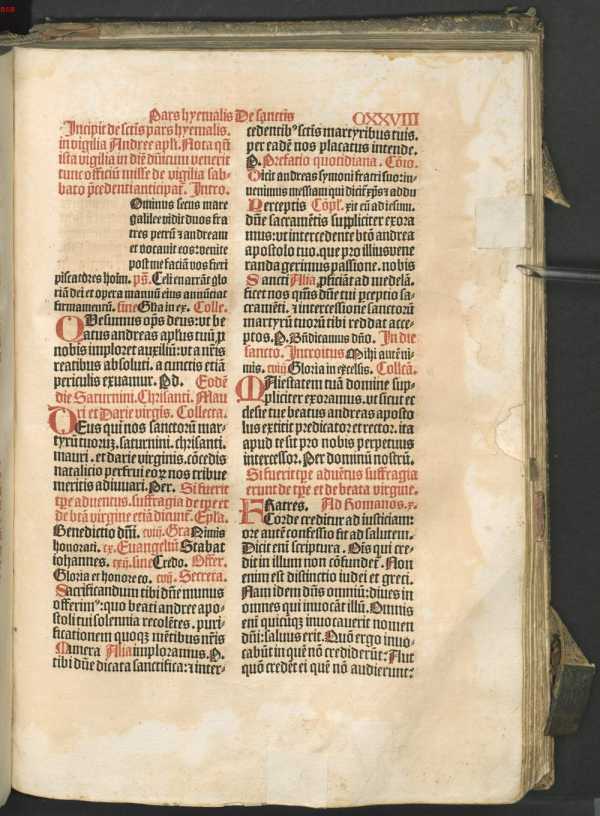 Pars hyemalis De sanctis CXXVIII
Incipit de sctis pars hyemalis.
in vigilia Andree apli. Nota qn̄
ista vigilia in diē dn̄icum venerit
tunc officiū misse de vigilia sab-
bato p̄cedenti anticipat᷑. Intro.
Ominus secus mare
galilee vidit duos fra
tres petrū ⁊ andream
et vocauit eos: venite
post me faciā vos fieri
piscatores hoīm. ps̄. Celi enarrāt glo
riā dei et opera manuū eius annūciat
firmamentū. sine Glīa in ex. Colle.
QUesumus oīps deus: vt be
atus andreas aplus tuū p̄
nobis imploret auxiliū: vt a nr̄is
reatibus absoluti. a cunctis etiā
periculis exuamur. Pd. Eodē
die Saturnini. Chrisanti. Mau
ri et Darie virgīs. Collecta.
DEus qui nos sanctorū mar-
tyrū tuorūꝫ. saturnini. chrisanti.
mauri. et darie virginis. cōcedis
natalicio perfrui eoꝝ nos tribue
meritis adiuuari. Per. Si fuerit
tp̄e aduentus. suffragia de tp̄e et
de btā virgine etiā dicunt᷑. Ep̄la.
Benedictio dn̄i. cviij. Gra Nimis
honorati. cx. Euangeliū Stabat
iohannes. cxij. sine Credo. Offer.
Gloria et honore co. cvij. Secreta.
Sacrificandum tibi dn̄e munus
offerimꝰ: quo beati andree apo-
stoli tui solennia recolētes. puri-
ficationem quoqꝫ mētibus nr̄is
Munera Alia imploramus. P.
tibi dn̄e dicata sanctifica: ⁊ inter-
cedentibꝰ sctīs martyribus tuis.
per eadē nos placatus intende.
P. Prefatio quotidiana. Cōio.
Dicit andreas symoni fratri suo: in-
uenimus messiam qui dicit᷑ xp̄s ⁊ addu
Perceptis Cōpl. xit eū ad iesum.
dn̄e sacramētis suppliciter exora
mus: vt intercedente btō andrea
apostolo tuo. que pro illius vene
randa gerimus passione. nobis
Sancti Alia. p̄ficiāt ad medelā.
ficet nos qm̄s dn̄e tui p̄ceptio sa-
cramēti. ⁊ intercessione sanctorū
martyrū tuorū tibi reddat acce-
ptos. P. Bn̄dicamus dn̄o. In die
sancto. Introitus Mihi autē ni-
mis. cviij Gloria in excelsis. Collcā.
MAiestatem tuā domine sup-
pliciter exoramus. vt sicut ec
clesie tue beatus andreas aposto
lus extitit predicator et rector. ita
apud te sit pro nobis perpetuus
intercessor. Per dominū nostrū.
Si fuerit tp̄e aduētus suffragia
erunt de tp̄e et de beata virgine.
FRatres. Ad Romanos. x.
Corde creditur ad iusticiam:
ore autē confessio fit ad salutem.
Dicit enī scriptura. Oīs qui cre-
dit in illum non cōfundet᷑. Non
enim est distinctio iudei et greci.
Nam idem dn̄s omniū: diues in
omnes qui inuocāt illū. Omnis
enī quicūqꝫ inuocauerit nomen
dn̄i: saluus erit. Quō ergo inuo-
cabūt in quē nō crediderūt: Aut
quō credēt ei quē nō audierunt: